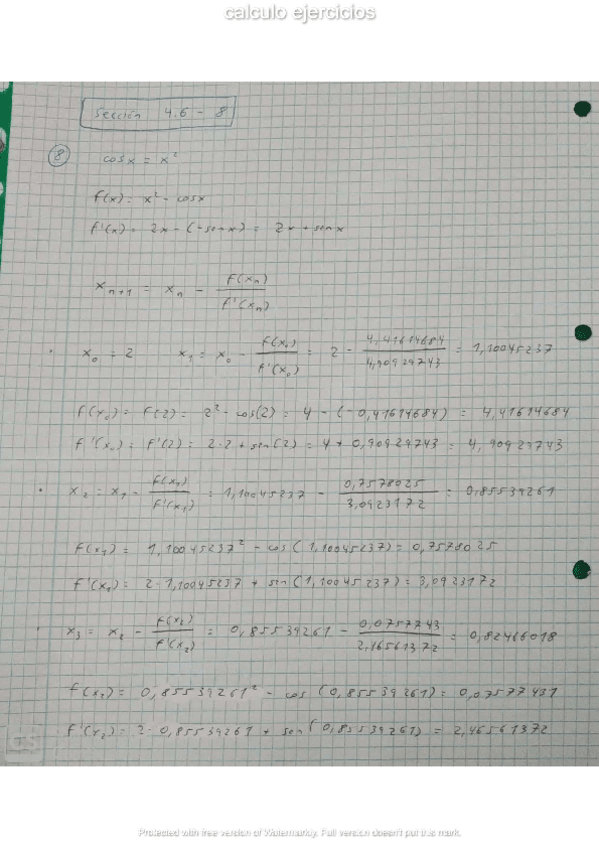 calculo ejercicios
Sección 4.6 - 8
⑧ cosx = x²
f(x) = x² - cosx
f'(x) = 2x - (-senx) = 2x + senx
x_{n+1} = x_n - f(x_n) / f'(x_n)
• x₀ = 2 x₁ = x₀ - f(x₀) / f'(x₀) = 2 - 4,41614684 / 4,90929743 = 1,10045237
f(x₀) = f(2) = 2² - cos(2) = 4 - (-0,41614684) = 4,41614684
f'(x₀) = f'(2) = 2·2 + sen(2) = 4 + 0,90929743 = 4,90929743
• x₂ = x₁ - f(x₁) / f'(x₁) = 1,10045237 - 0,7578025 / 3,0923172 = 0,85539261
f(x₁) = 1,10045237² - cos(1,10045237) = 0,7578025
f'(x₁) = 2·1,10045237 + sin(1,10045237) = 3,0923172
• x₃ = x₂ - f(x₂) / f'(x₂) = 0,85539261 - / = 0,82466018
f(x₂) = 0,85539261² - cos(0,85539261) = 0,07577431
f'(x₂) = 2·0,85539261 + sen(0,85539261) = 2,46561372
Protected with free version of Watermarkly. Full version doesn't put this mark.